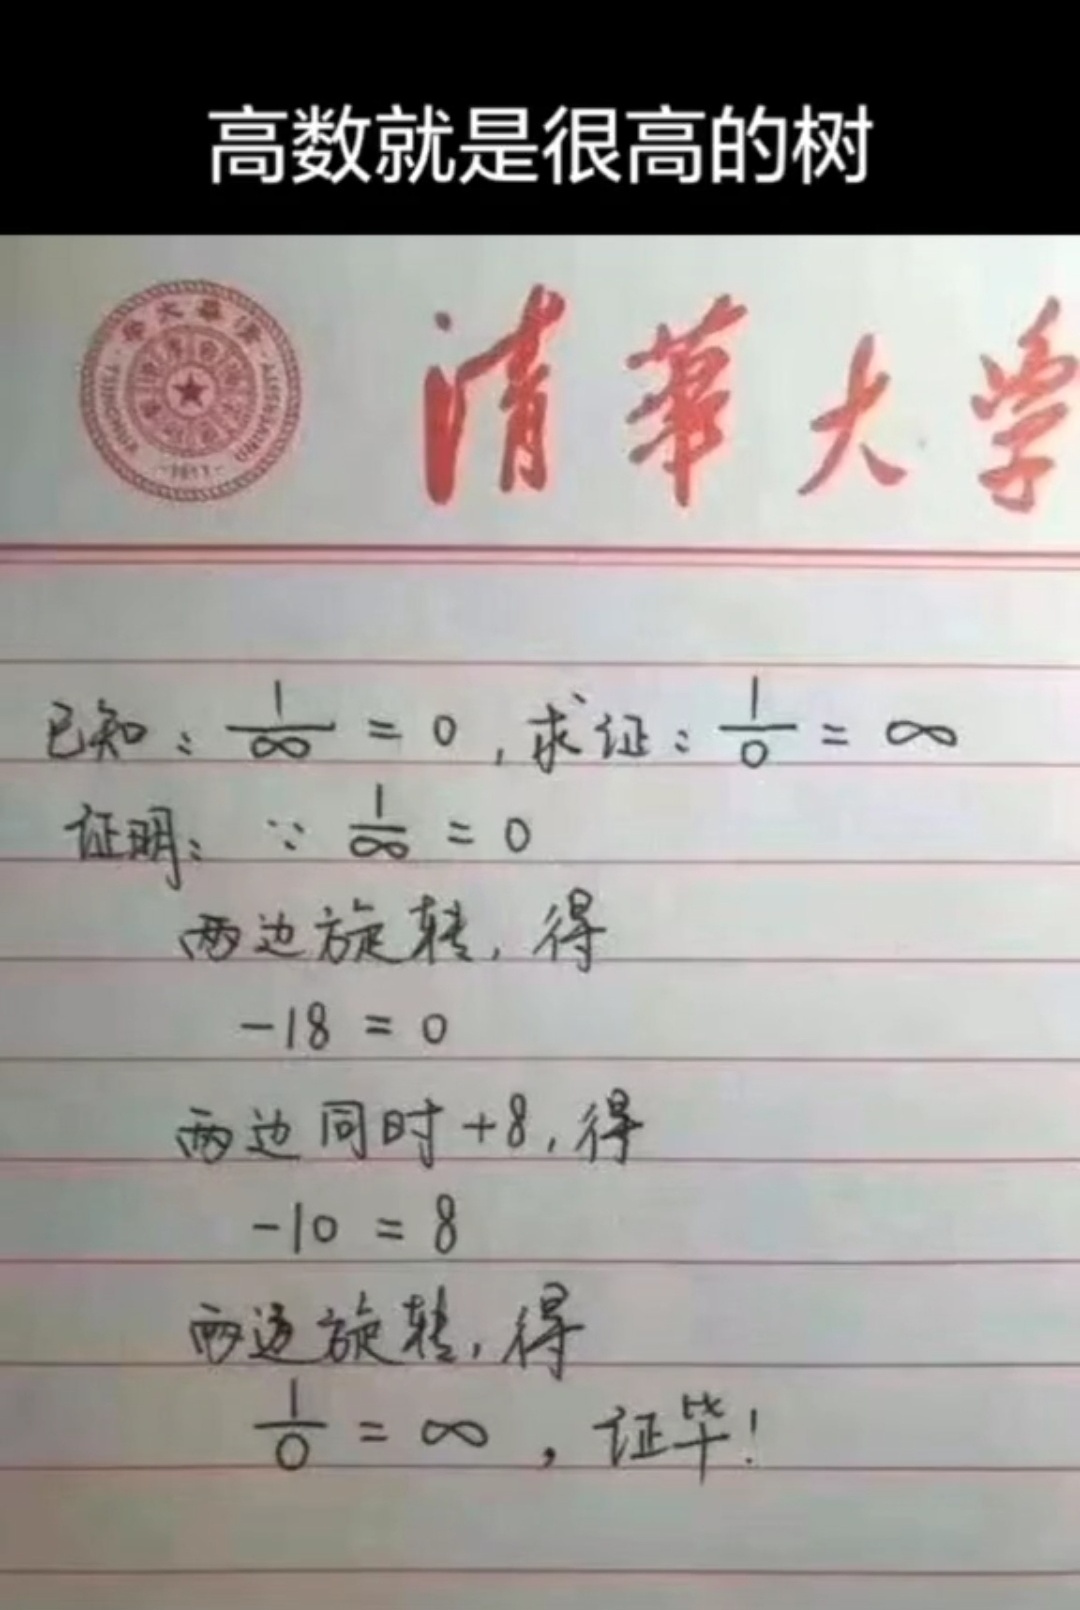 高数就是很高的树
清华大学
TSINGHUA UNIVERSITY
-1911-
已知: 1/∞ = 0, 求证: 1/0 = ∞
证明: ∵ 1/∞ = 0
两边旋转, 得
-18 = 0
两边同时+8, 得
-10 = 8
两边旋转, 得
1/0 = ∞, 证毕!